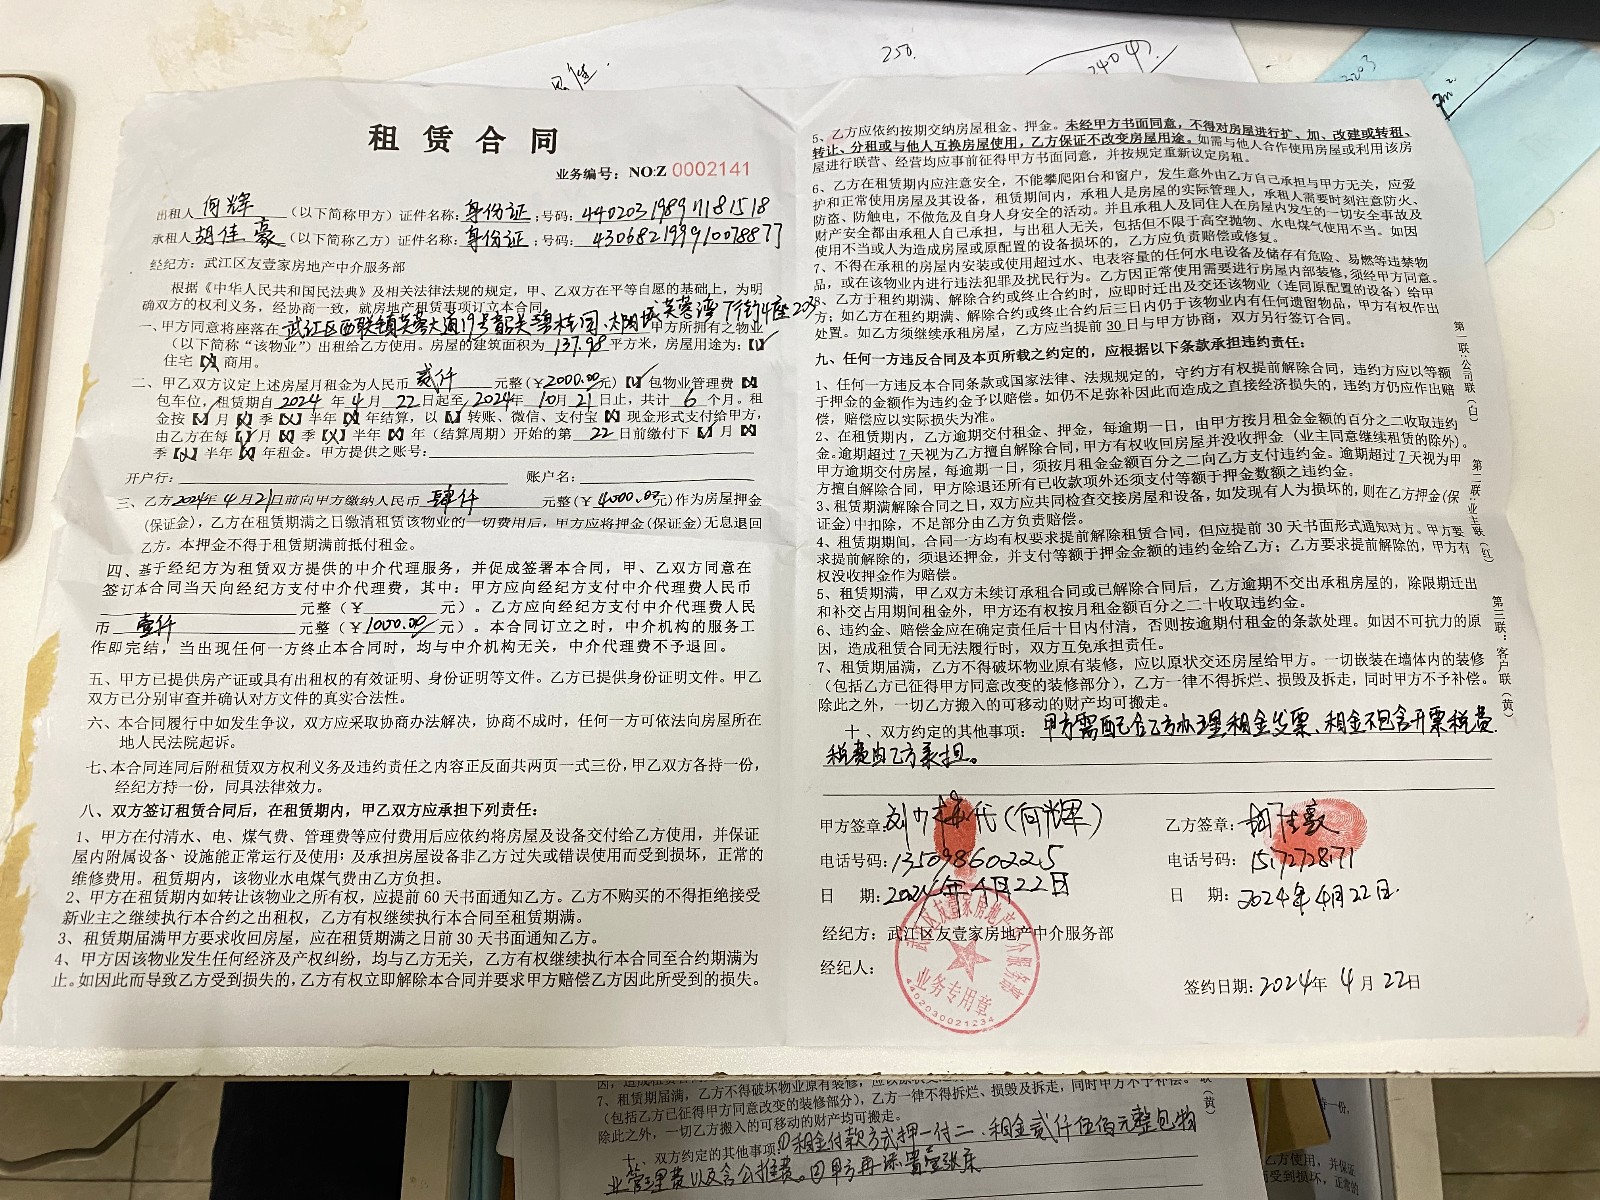 250.
租赁合同
业务编号：NO:Z 0002141
出租人 何辉 （以下简称甲方）证件名称：身份证；号码：440203198911181518
承租人 胡佳豪 （以下简称乙方）证件名称：身份证；号码：430682199910078877
经纪方：武江区友壹家房地产中介服务部
根据《中华人民共和国民法典》及相关法律法规的规定，甲、乙双方在平等自愿的基础上，为明
确双方的权利义务，经协商一致，就房地产租赁事项订立本合同。
一、甲方同意将座落在 武江区西联镇芙蓉大道19号韶关碧桂园·太阳城芙蓉湾7街4座203 甲方所拥有之物业
（以下简称“该物业”）出租给乙方使用。房屋的建筑面积为 137.98 平方米，房屋用途为：【√】
住宅【X】商用。
二、甲乙双方议定上述房屋月租金为人民币 贰仟 元整（¥2000.00元）【√】包物业管理费【X】
包车位，租赁期自 2024 年 4 月 22 日起至 2024 年 10 月 21 日止，共计 6 个月。租
金按【√】月【X】季【X】半年【X】年结算，以【√】转账、微信、支付宝【X】现金形式支付给甲方，
由乙方在每【√】月【X】季【X】半年【X】年（结算周期）开始的第 22 日前缴付下【√】月【X】
季【X】半年【X】年租金。甲方提供之账号：
开户行： 账户名：
三、乙方 2024年4月21日前向甲方缴纳人民币 肆仟 元整（¥4000.00元）作为房屋押金
（保证金），乙方在租赁期满之日缴清租赁该物业的一切费用后，甲方应将押金（保证金）无息退回
乙方。本押金不得于租赁期满前抵付租金。
四、基于经纪方为租赁双方提供的中介代理服务，并促成签署本合同，甲、乙双方同意在
签订本合同当天向经纪方支付中介代理费，其中：甲方应向经纪方支付中介代理费人民币
元整（¥ 元）。乙方应向经纪方支付中介代理费人民
币 壹仟 元整（¥1000.00元）。本合同订立之时，中介机构的服务工
作即完结，当出现任何一方终止本合同时，均与中介机构无关，中介代理费不予退回。
五、甲方已提供房产证或具有出租权的有效证明、身份证明等文件。乙方已提供身份证明文件。甲乙
双方已分别审查并确认对方文件的真实合法性。
六、本合同履行中如发生争议，双方应采取协商办法解决，协商不成时，任何一方可依法向房屋所在
地人民法院起诉。
七、本合同连同后附租赁双方权利义务及违约责任之内容正反面共两页一式三份，甲乙双方各持一份，
经纪方持一份，同具法律效力。
八、双方签订租赁合同后，在租赁期内，甲乙双方应承担下列责任：
1、甲方在付清水、电、煤气费、管理费等应付费用后应依约将房屋及设备交付给乙方使用，并保证
屋内附属设备、设施能正常运行及使用；及承担房屋设备非乙方过失或错误使用而受到损坏，正常的
维修费用。租赁期内，该物业水电煤气费由乙方负担。
2、甲方在租赁期内如转让该物业之所有权，应提前60天书面通知乙方。乙方不购买的不得拒绝接受
新业主之继续执行本合约之出租权，乙方有权继续执行本合同至租赁期满。
3、租赁期届满甲方要求收回房屋，应在租赁期满之日前30天书面通知乙方。
4、甲方因该物业发生任何经济及产权纠纷，均与乙方无关，乙方有权继续执行本合同至合约期满为
止。如因此而导致乙方受到损失的，乙方有权立即解除本合同并要求甲方赔偿乙方因此所受到的损失。
5、乙方应依约按期交纳房屋租金、押金。未经甲方书面同意，不得对房屋进行扩、加、改建或转租、
转让、分租或与他人互换房屋使用，乙方保证不改变房屋用途。如需与他人合作使用房屋或利用该房
屋进行联营、经营均应事前征得甲方书面同意，并按规定重新议定房租。
6、乙方在租赁期内应注意安全，不能攀爬阳台和窗户，发生意外由乙方自己承担与甲方无关，应爱
护和正常使用房屋及其设备，租赁期间内，承租人是房屋的实际管理人，承租人需要时刻注意防火、
防盗、防触电，不做危及自身人身安全的活动。并且承租人及同住人在房屋内发生的一切安全事故及
财产安全都由承租人自己承担，与出租人无关，包括但不限于高空抛物、水电煤气使用不当。如因
使用不当或人为造成房屋或原配置的设备损坏的，乙方应负责赔偿或修复。
7、不得在承租的房屋内安装或使用超过水、电表容量的任何水电设备及储存有危险、易燃等违禁物
品，或在该物业内进行违法犯罪及扰民行为。乙方因正常使用需要进行房屋内部装修，须经甲方同意。
8、乙方于租约期满、解除合约或终止合约时，应即时迁出及交还该物业（连同原配置的设备）给甲
方；如乙方在租约期满、解除合约或终止合约后三日内仍于该物业内有任何遗留物品，甲方有权作出
处置。如乙方须继续承租房屋，乙方应当提前30日与甲方协商，双方另行签订合同。
九、任何一方违反合同及本页所载之约定的，应根据以下条款承担违约责任：
1、任何一方违反本合同条款或国家法律、法规规定的，守约方有权提前解除合同，违约方应以等额
于押金的金额作为违约金予以赔偿。如仍不足弥补因此而造成之直接经济损失的，违约方仍应作出赔
偿，赔偿应以实际损失为准。
2、在租赁期内，乙方逾期交付租金、押金，每逾期一日，由甲方按月租金金额的百分之二收取违约
金。逾期超过7天视为乙方擅自解除合同，甲方有权收回房屋并没收押金（业主同意继续租赁的除外）。
甲方逾期交付房屋，每逾期一日，须按月租金金额百分之二向乙方支付违约金。逾期超过7天视为甲
方擅自解除合同，甲方除退还所有已收款项外还须支付等额于押金数额之违约金。
3、租赁期满解除合同之日，双方应共同检查交接房屋和设备，如发现有人为损坏的，则在乙方押金（保
证金）中扣除，不足部分由乙方负责赔偿。
4、租赁期期间，合同一方均有权要求提前解除租赁合同，但应提前30天书面形式通知对方。甲方要
求提前解除的，须退还押金，并支付等额于押金金额的违约金给乙方；乙方要求提前解除的，甲方有
权没收押金作为赔偿。
5、租赁期满，甲乙双方未续订承租合同或已解除合同后，乙方逾期不交出承租房屋的，除限期迁出
和补交占用期间租金外，甲方还有权按月租金额百分之二十收取违约金。
6、违约金、赔偿金应在确定责任后十日内付清，否则按逾期付租金的条款处理。如因不可抗力的原
因，造成租赁合同无法履行时，双方互免承担责任。
7、租赁期届满，乙方不得破坏物业原有装修，应以原状交还房屋给甲方。一切嵌装在墙体内的装修
（包括乙方已征得甲方同意改变的装修部分），乙方一律不得拆烂、损毁及拆走，同时甲方不予补偿。
除此之外，一切乙方搬入的可移动的财产均可搬走。
十、双方约定的其他事项：甲方需配合乙方办理租金发票、租金不包含开票税费
税费由乙方承担。
甲方签章： 代（何辉）
电话号码：13509860225
日 期：2024年4月22日
乙方签章：胡佳豪
电话号码：15172728171
日 期：2024年4月22日.
经纪方：武江区友壹家房地产中介服务部
经纪人：
签约日期：2024年 4月 22日
武江区友壹家房地产中介服务部
业务专用章
4402030021234
第一联：公司联（白）
第二联：业主联（红）
第三联：客户联（黄）
7、租赁期届满，乙方不得破坏物业原有装修，应以原状交
（包括乙方已征得甲方同意改变的装修部分），乙方一律不得拆烂、损毁及拆走，同时甲方不予补偿。
除此之外，一切乙方搬入的可移动的财产均可搬走。
十、双方约定的其他事项：①租金付款方式押一付二、租金贰仟伍佰元整包物
业管理费以及含公摊费。②甲方再添置壹张床
（黄）